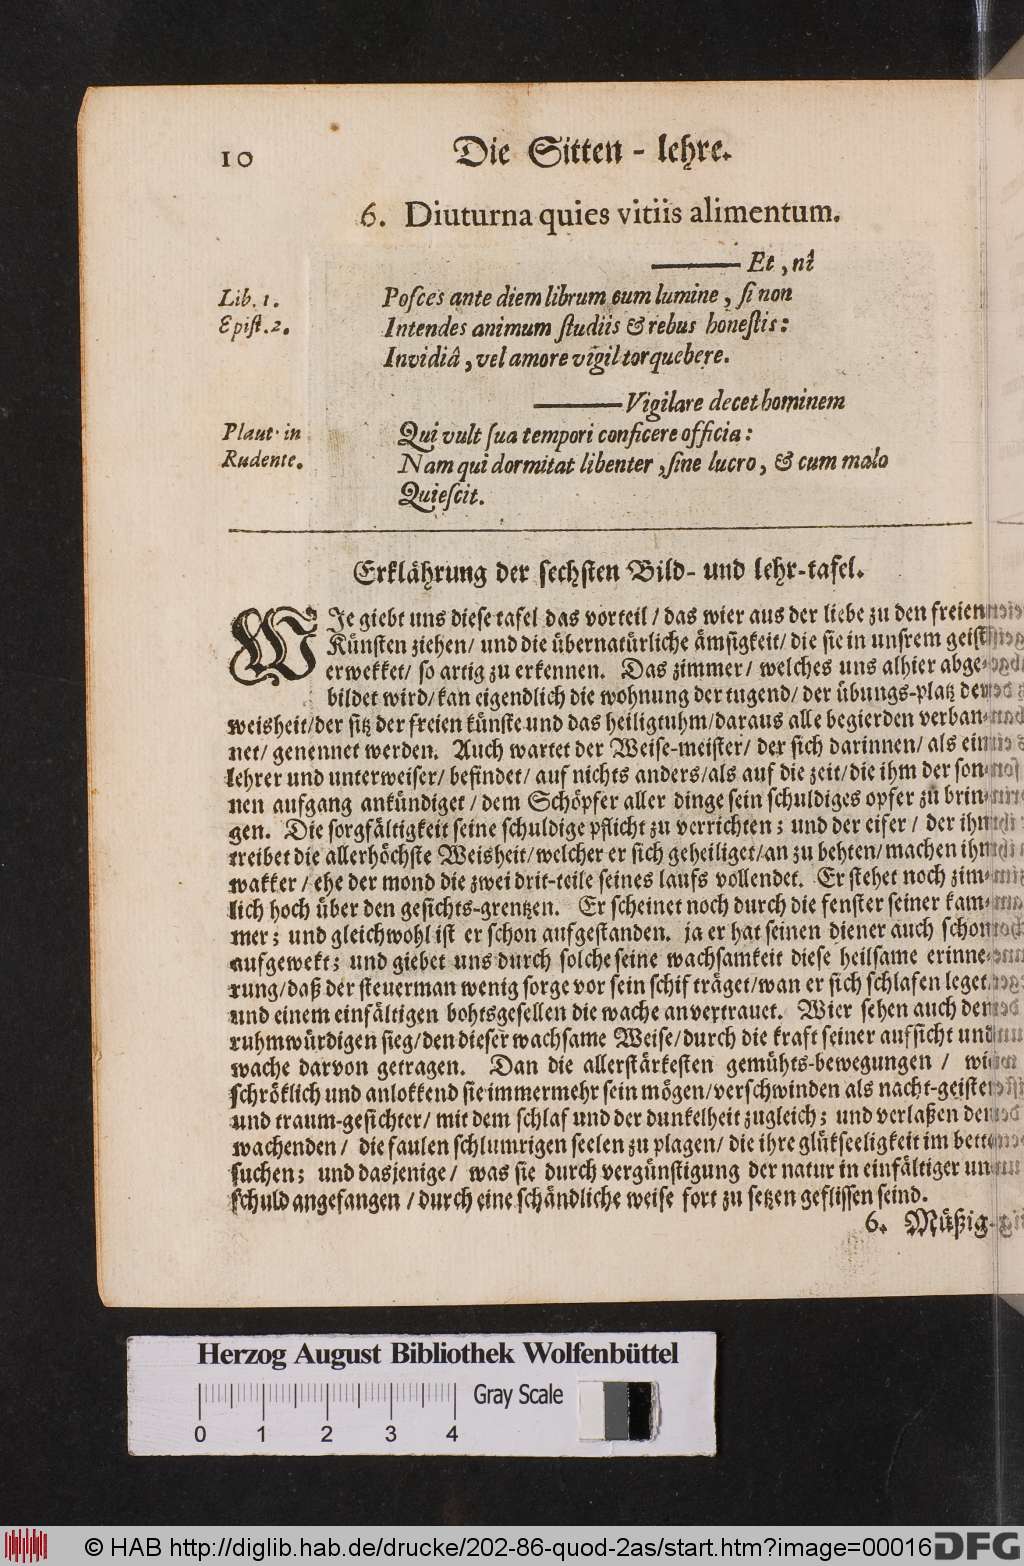 10 Die Sitten - lehre.
6. Diuturna quies vitiis alimentum.
Et, nî
Lib. 1. Posces ante diem librum cum lumine, si non
Epist. 2. Intendes animum studiis & rebus honestis:
Invidiâ, vel amore vigil torquebere.
Vigilare decet hominem
Plaut. in Qui vult sua tempori conficere officia:
Rudente. Nam qui dormitat libenter, sine lucro, & cum malo
Quiescit.
Erklährung der sechsten Bild- und lehr-tafel.
WJe giebt uns diese tafel das vorteil / das wier aus der liebe zu den freien
Künsten ziehen / und die übernatürliche ämsigkeit / die sie in unsrem geist
erwekket / so artig zu erkennen. Das zimmer / welches uns alhier abge-
bildet wird / kan eigendlich die wohnung der tugend / der übungs-platz der
weisheit / der sitz der freien künste und das heiligtuhm / daraus alle begierden verban-
net / genennet werden. Auch wartet der Weise-meister / der sich darinnen / als ein
lehrer und unterweiser / befindet / auf nichts anders / als auf die zeit / die ihm der son-
nen aufgang ankündiget / dem Schöpfer aller dinge sein schuldiges opfer zu brin-
gen. Die sorgfältigkeit seine schuldige pflicht zu verrichten; und der eifer / der ihn
treibet die allerhöchste Weisheit / welcher er sich geheiliget / an zu behten / machen ihn
wakker / ehe der mond die zwei drit-teile seines laufs vollendet. Er stehet noch zim-
lich hoch über den gesichts-grentzen. Er scheinet noch durch die fenster seiner kam-
mer; und gleichwohl ist er schon aufgestanden. ja er hat seinen diener auch schon
aufgewekt; und giebet uns durch solche seine wachsamkeit diese heilsame erinne-
rung / daß der steuerman wenig sorge vor sein schif träget / wan er sich schlafen leget
und einem einfältigen bohtsgesellen die wache anvertrauet. Wier sehen auch den
ruhmwürdigen sieg / den dieser wachsame Weise / durch die kraft seiner aufsicht und
wache darvon getragen. Dan die allerstärkesten gemühts-bewegungen / wie
schröklich und anlokkend sie immermehr sein mögen / verschwinden als nacht-geister
und traum-gesichter / mit dem schlaf und der dunkelheit zugleich; und verlaßen den
wachenden / die faulen schlumrigen seelen zu plagen / die ihre glükseeligkeit im bette
suchen; und dasjenige / was sie durch vergünstigung der natur in einfältiger un-
schuld angefangen / durch eine schändliche weise fort zu setzen geflissen seind.
6. Müßig-
Herzog August Bibliothek Wolfenbüttel
Gray Scale
0 1 2 3 4
© HAB http://diglib.hab.de/drucke/202-86-quod-2as/start.htm?image=00016 DFG